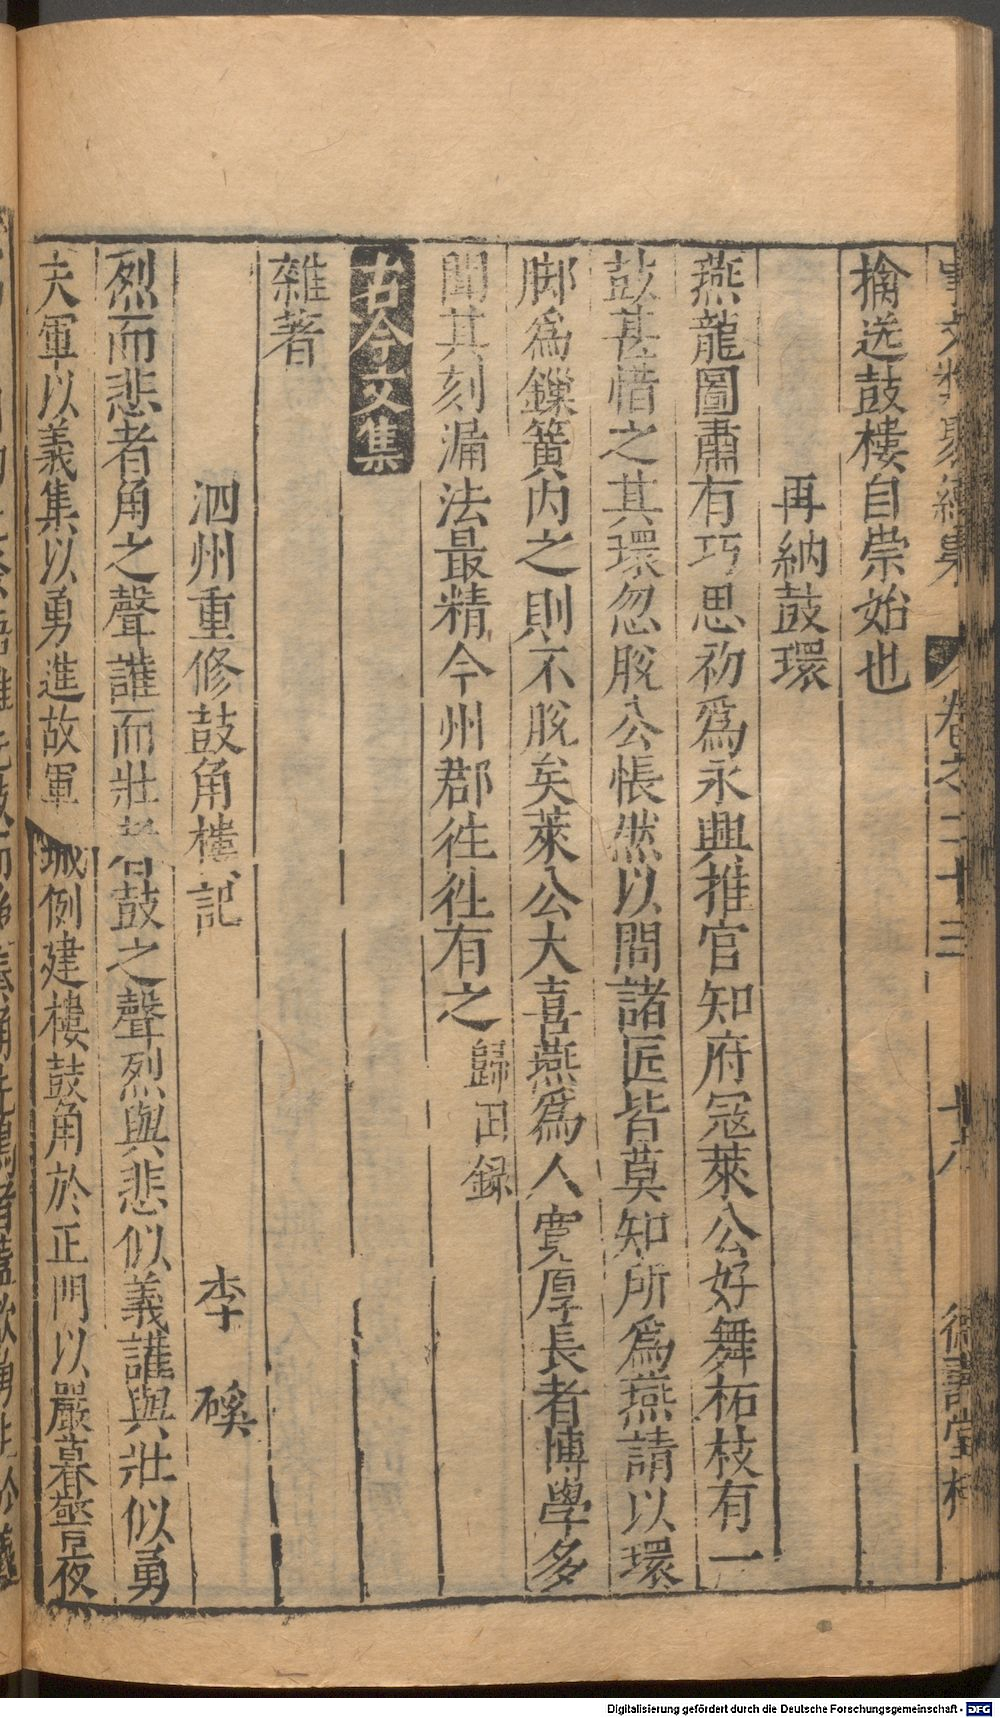 事文類聚續集 卷之二十三 十八 德壽堂梓
擒送鼓樓自崇始也
再納鼓環
燕龍圖肅有巧思初爲永興推官知府冦萊公好舞柘枝有一
鼓甚惜之其環忽脫公悵然以問諸匠皆莫知所爲燕請以環
脚爲鏁簧内之則不脫矣萊公大喜燕爲人寬厚長者博學多
聞其刻漏法最精今州郡徃徃有之 歸田録
古今文集
雜著
泗州重修鼓角樓記 李磎
烈而悲者角之聲讙而壯者鼓之聲烈與悲似義讙與壯似勇
夫軍以義集以勇進故軍城例建樓鼓角於正門以嚴暮警夜
Digitalisierung gefördert durch die Deutsche Forschungsgemeinschaft - DFG